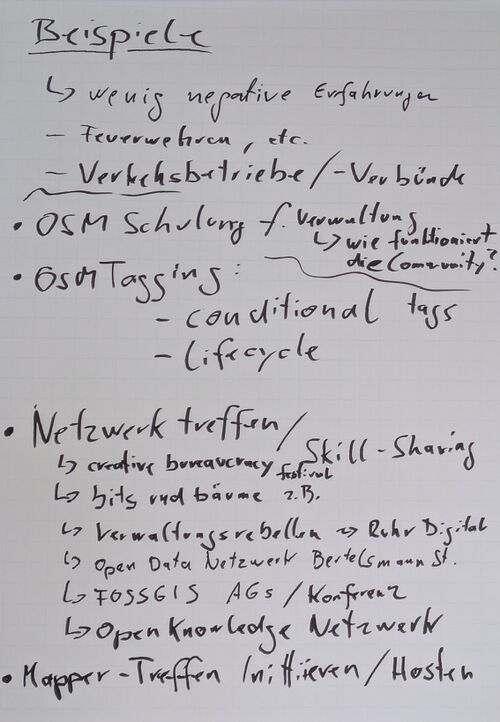 Beispiele
↳ wenig negative Erfahrungen
- Feuerwehren, etc.
- Verkehsbetriebe/-Verbünde
• OSM Schulung f. Verwaltung
↳ wie funktioniert
die Community?
• OSM Tagging:
- conditional tags
- lifecycle
• Netzwerktreffen/
Skill-Sharing
↳ creative bureaucracy festival
↳ bits und bäume z.B.
↳ Verwaltungsrebellen ⇝ Ruhr Digital
↳ Open Data Netzwerk Bertelsmann St.
↳ FOSSGIS AGs / Konferenz
↳ Open Knowledge Netzwerk
• Mapper-Treffen Inittieren/Hosten